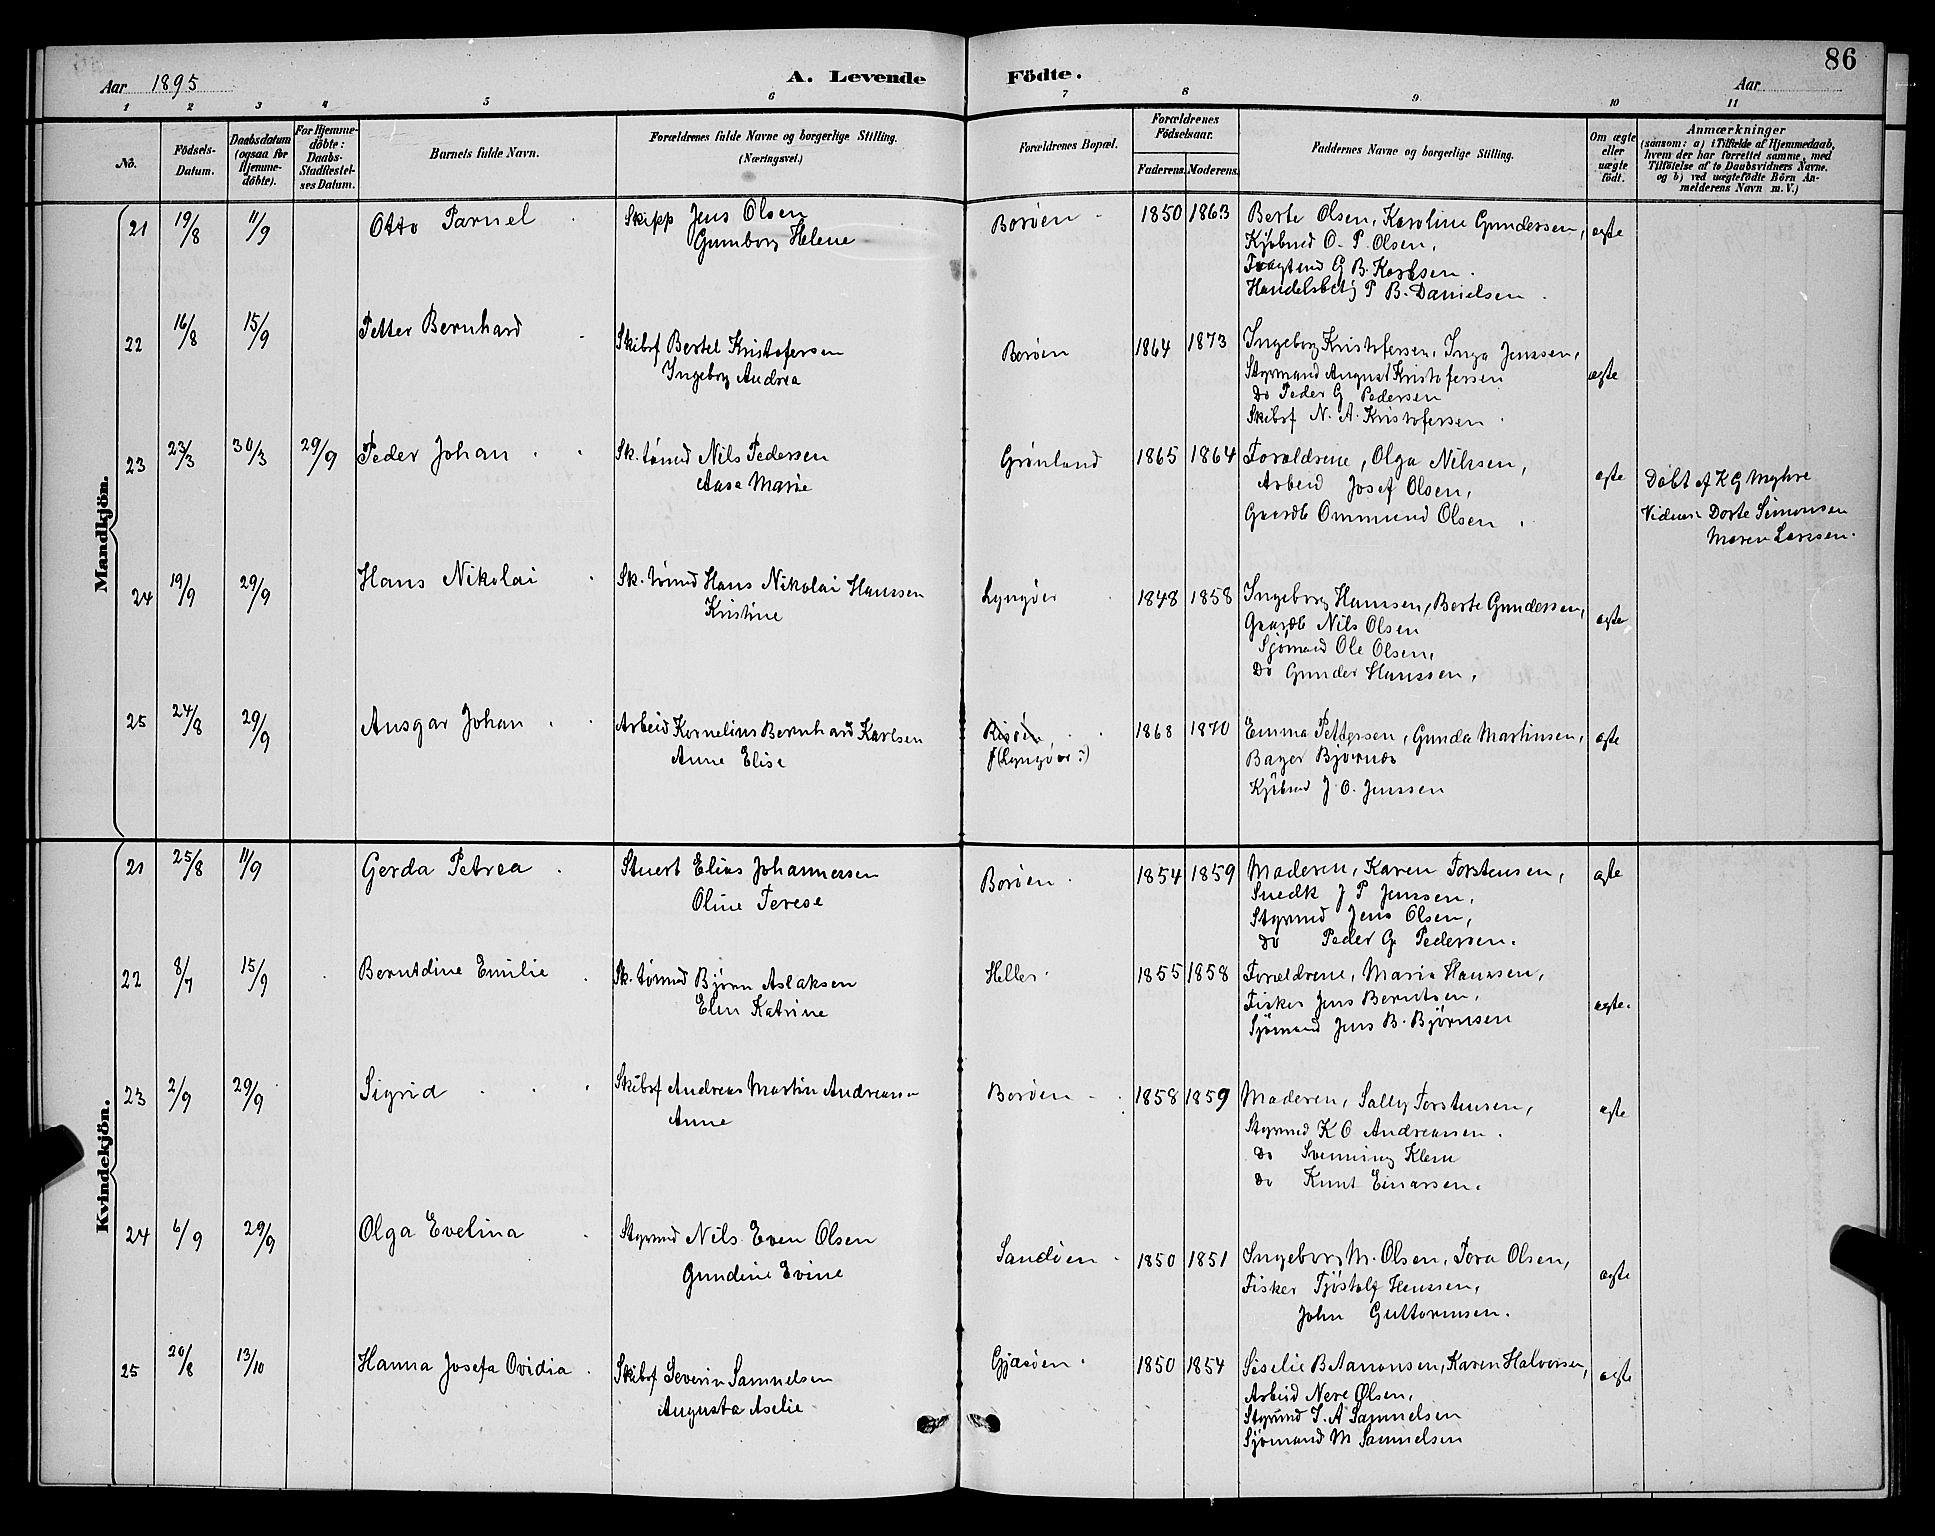 86
Aar 1895
A. Levende Födte.
Aar
1 2 3 4 5 6 7 8 9 10 11
No.
Födsels-Datum.
Daabsdatum (ogsaa for Hjemme-döbte).
For Hjemme-döbte: Daabs-Stadfæstel-ses Datum.
Barnets fulde Navn.
Forældrenes fulde Navne og borgerlige Stilling. (Næringsvei.)
Forældrenes Bopæl.
Forældrenes Födselsaar.
Faderens. Moderens.
Faddernes Navne og borgerlige Stilling.
Om ægte eller uægte födt.
Anmærkninger
(saasom: a) i Tilfælde af Hjemmedaab, hvem der har forrettet samme, med Tilföielse af to Daabsvidners Navne, og b) ved uægtefödte Börn An-melderens Navn m. V.)
Mandkjön.
21 19/8 11/9 Otto Parnel Skipp Jens Olsen Borøen 1850 1863 Berte Olsen, Karoline Gundersen, ægte
Gunborg Helene Kjøbmd O. P. Olsen,
Fragtmd G B. Karlsen.
Handelsbetj P B. Danielsen.
22 16/8 15/9 Petter Bernhard Skibsf Bertel Kristofersen Borøen 1864 1873 Ingeborg Kristofersen, Inga Jenssen, ægte
Ingeborg Andrea Styrmand August Kristofersen
Do Peder G Pedersen
Skibsf N. A. Kristofersen.
23 23/3 30/3 29/9 Peder Johan Sk. tømmd Nils Pedersen Grønland 1865 1864 Forældrene, Olga Nilssen, ægte Døbt af K G Myhre
Aase Marie Arbeid Josef Olsen, Vidner: Dorte Simonsen
Gaardb Ommund Olsen. Maren Larssen.
24 19/9 29/9 Hans Nikolai Sk. tømmd Hans Nikolai Hanssen Lyngøer 1848 1858 Ingeborg Hanssen, Berte Gundersen, ægte
Kristine Gaardb Nils Olsen
Sjømand Ole Olsen,
Do Gunder Hanssen,
25 24/8 29/9 Ansgar Johan Arbeid Kornelius Bernhard Karlsen Risøen 1868 1870 Emma Pettersen, Gunda Martinsen, ægte
Anne Elise (Lyngøer?) Bager Bjørnæs
Kjøbmd J. O. Jenssen
Kvindekjön.
21 25/8 11/9 Gerda Petrea Stuert Elias Johannessen Borøen 1854 1859 Moderen, Karen Torstensen, ægte
Oline Terese Snedk J P Jenssen,
Styrmd Jens Olsen,
Do Peder G Pedersen.
22 8/7 15/9 Berntdine Emilie Sk. tømmd Bjørn Aslaksen Helle 1855 1858 Forældrene, Maria Hanssen, ægte.
Elen Katrine Fisker Jens Berntsen,
Sjømand Jens B. Bjørnsen
23 2/9 29/9 Sigrid Skibsf Andreas Martin Andreasen Borøen 1858 1859 Moderen, Sally Torstensen, ægte
Anne Styrmd K O Andreassen.
Do Svenning Klem
Do Knut Einarsen.
24 6/9 29/9 Olga Evelina Styrmd Nils Even Olsen Sandøen 1850 1851 Ingeborg M. Olsen, Tora Olsen, ægte
Gundine Evine Fisker Tjøstolf Henssen,
John Guttormsen.
25 20/8 13/10 Hanna Josefa Ovidia Skibsf Severin Samuelsen Gjæsøen 1850 1854 Siselie B Aanonsen, Karen Halvorsen, ægte
Augusta Aselie Arbeid Nere Olsen,
Styrmd S. A Samuelsen
Sjømand M Samuelsen